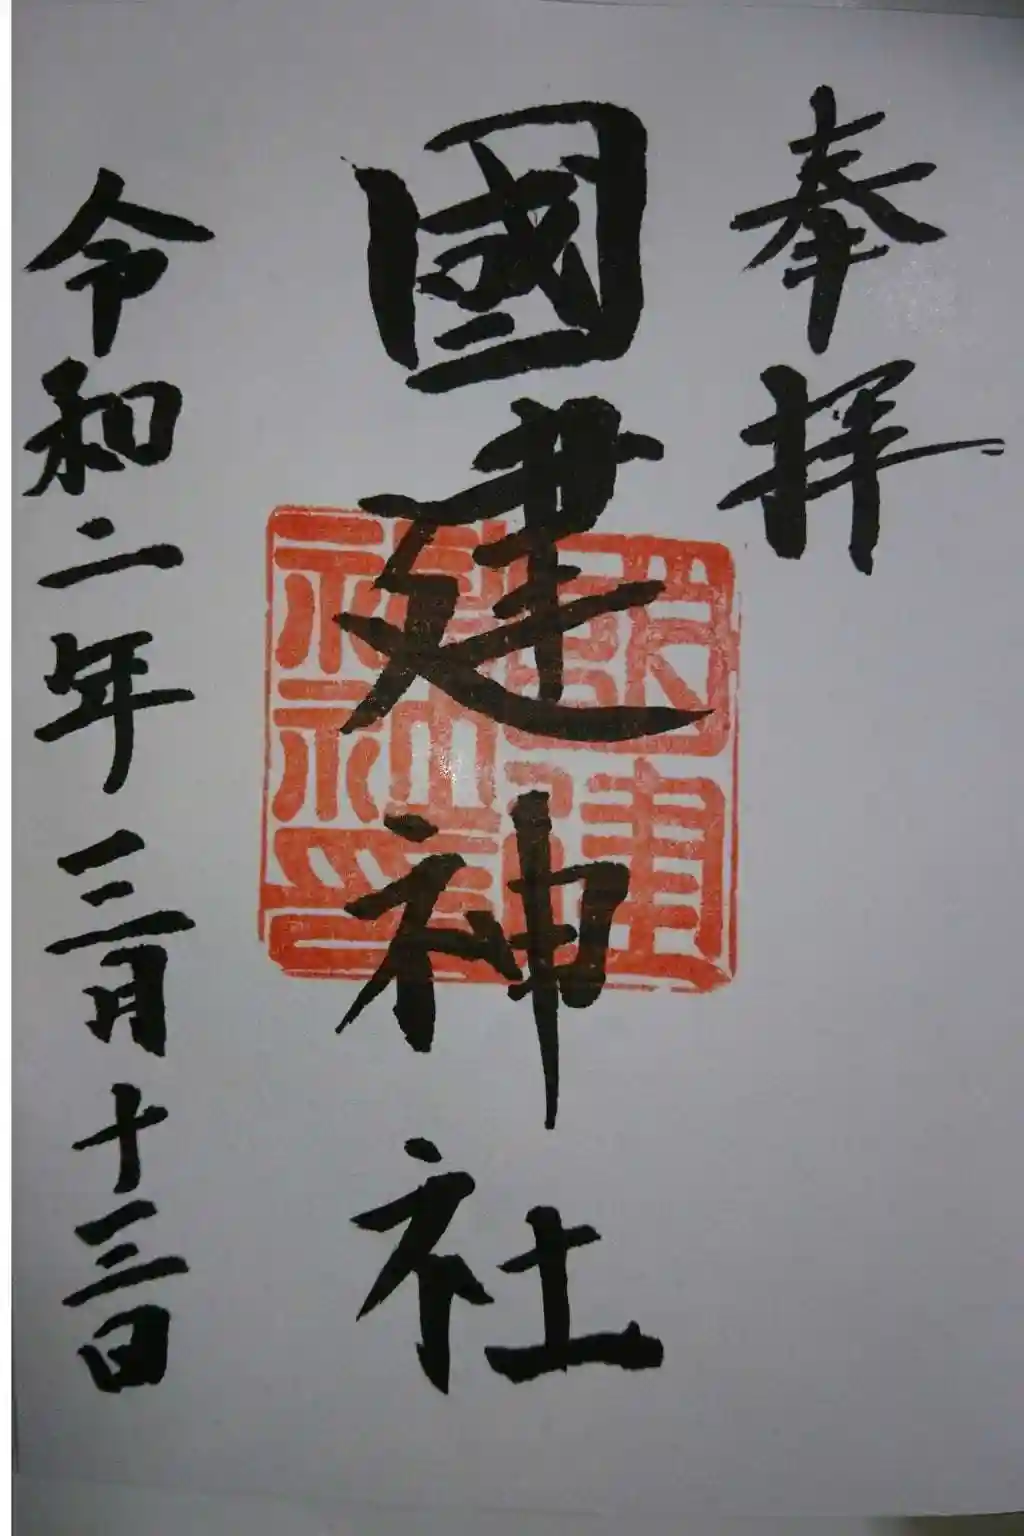 奉拝
國建神社
國建神社神印
令和二年三月十三日